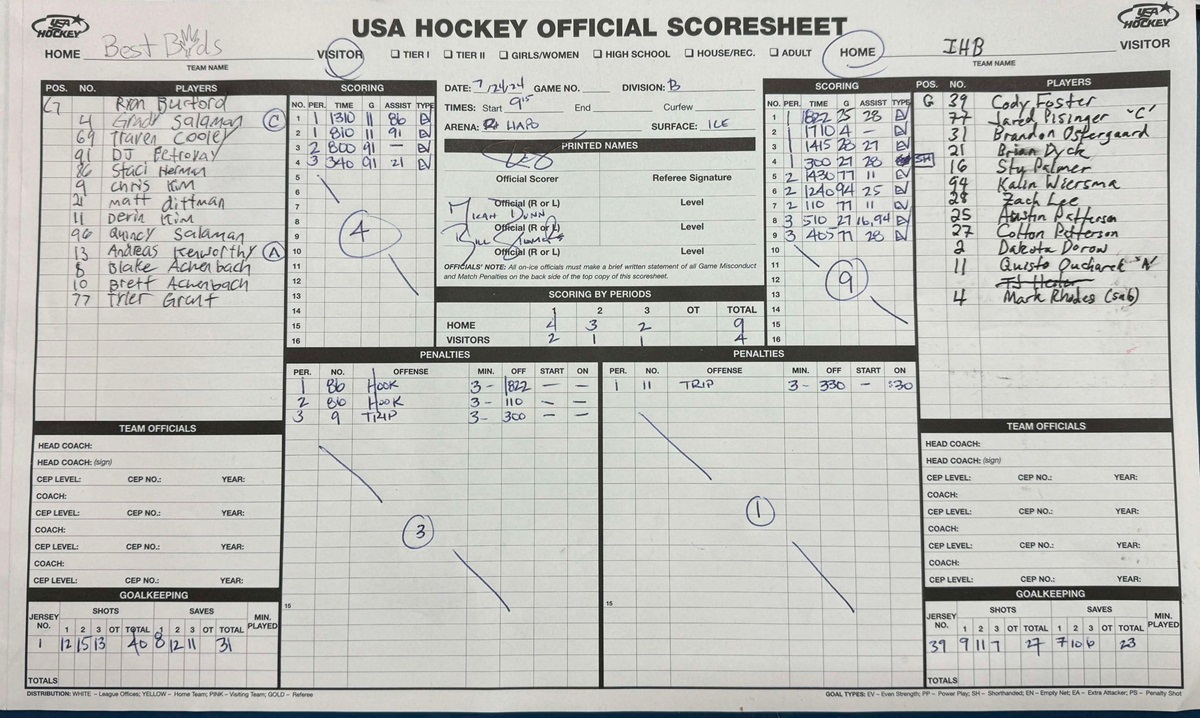 USA HOCKEY
USA HOCKEY OFFICIAL SCORESHEET
USA HOCKEY
HOME Best Birds
TEAM NAME
VISITOR ☐ TIER I ☐ TIER II ☐ GIRLS/WOMEN ☐ HIGH SCHOOL ☐ HOUSE/REC. ☐ ADULT HOME
IHB VISITOR
TEAM NAME
POS. NO. PLAYERS
G Ryan Burford
4 Grady Salaman C
69 Traven Cooley
91 DJ Petrovay
86 Staci Herman
9 Chris Kim
21 Matt Dittman
11 Derin Kim
96 Quincy Salaman
13 Andreas Kenworthy A
8 Blake Achenbach
10 Brett Achenbach
77 Tyler Grant
SCORING
NO. PER. TIME G ASSIST TYPE
1 1 1310 11 86 EV
2 1 810 11 91 EV
3 2 800 91 — EV
4 3 340 91 21 EV
5
6
7
8
9
10
11
12
13
14
15
16
4
DATE: 7/24/24 GAME NO. DIVISION: B
TIMES: Start 915 End Curfew
ARENA: HAPO SURFACE: ICE
PRINTED NAMES
Official Scorer Referee Signature
Official (R or L) Level
Micah Dunn
Official (R or L) Level
Official (R or L) Level
OFFICIALS' NOTE: All on-ice officials must make a brief written statement of all Game Misconduct
and Match Penalties on the back side of the top copy of this scoresheet.
SCORING BY PERIODS
1 2 3 OT TOTAL
HOME 4 3 2 9
VISITORS 2 1 1 4
SCORING
NO. PER. TIME G ASSIST TYPE
1 1 1822 25 28 EV
2 1 1710 4 — EV
3 1 1415 28 27 EV
4 1 300 27 28 SH
5 2 1430 77 11 EV
6 2 1240 94 25 EV
7 2 110 77 11 EV
8 3 510 27 16,94 EV
9 3 405 77 28 EV
10
11
12
13
14
15
16
9
POS. NO. PLAYERS
G 39 Cody Foster
77 Jared Pisinger "C"
31 Brandon Ostergaard
21 Brian Dyck
16 Sty Palmer
94 Kalin Wiersma
28 Zach Lee
25 Austin Patterson
27 Colton Patterson
2 Dakota Dorow
11 Quisto Oucharek "A"
4 Mark Rhodes (sub)
PENALTIES
PER. NO. OFFENSE MIN. OFF START ON
1 86 HOOK 3- 1822 — —
2 86 HOOK 3- 110 — —
3 9 TRIP 3- 300 — —
3
15
PENALTIES
PER. NO. OFFENSE MIN. OFF START ON
1 11 TRIP 3- 330 — :30
1
15
TEAM OFFICIALS
HEAD COACH:
HEAD COACH: (sign)
CEP LEVEL: CEP NO.: YEAR:
COACH:
CEP LEVEL: CEP NO.: YEAR:
COACH:
CEP LEVEL: CEP NO.: YEAR:
COACH:
CEP LEVEL: CEP NO.: YEAR:
GOALKEEPING
JERSEY NO. SHOTS SAVES MIN. PLAYED
1 2 3 OT TOTAL 1 2 3 OT TOTAL
1 12 15 13 40 8 12 11 31
TOTALS
TEAM OFFICIALS
HEAD COACH:
HEAD COACH: (sign)
CEP LEVEL: CEP NO.: YEAR:
COACH:
CEP LEVEL: CEP NO.: YEAR:
COACH:
CEP LEVEL: CEP NO.: YEAR:
COACH:
CEP LEVEL: CEP NO.: YEAR:
GOALKEEPING
JERSEY NO. SHOTS SAVES MIN. PLAYED
1 2 3 OT TOTAL 1 2 3 OT TOTAL
39 9 11 7 27 7 10 6 23
TOTALS
DISTRIBUTION: WHITE – League Offices; YELLOW – Home Team; PINK – Visiting Team; GOLD – Referee
GOAL TYPES: EV – Even Strength; PP – Power Play; SH – Shorthanded; EN – Empty Net; EA – Extra Attacker; PS – Penalty Shot